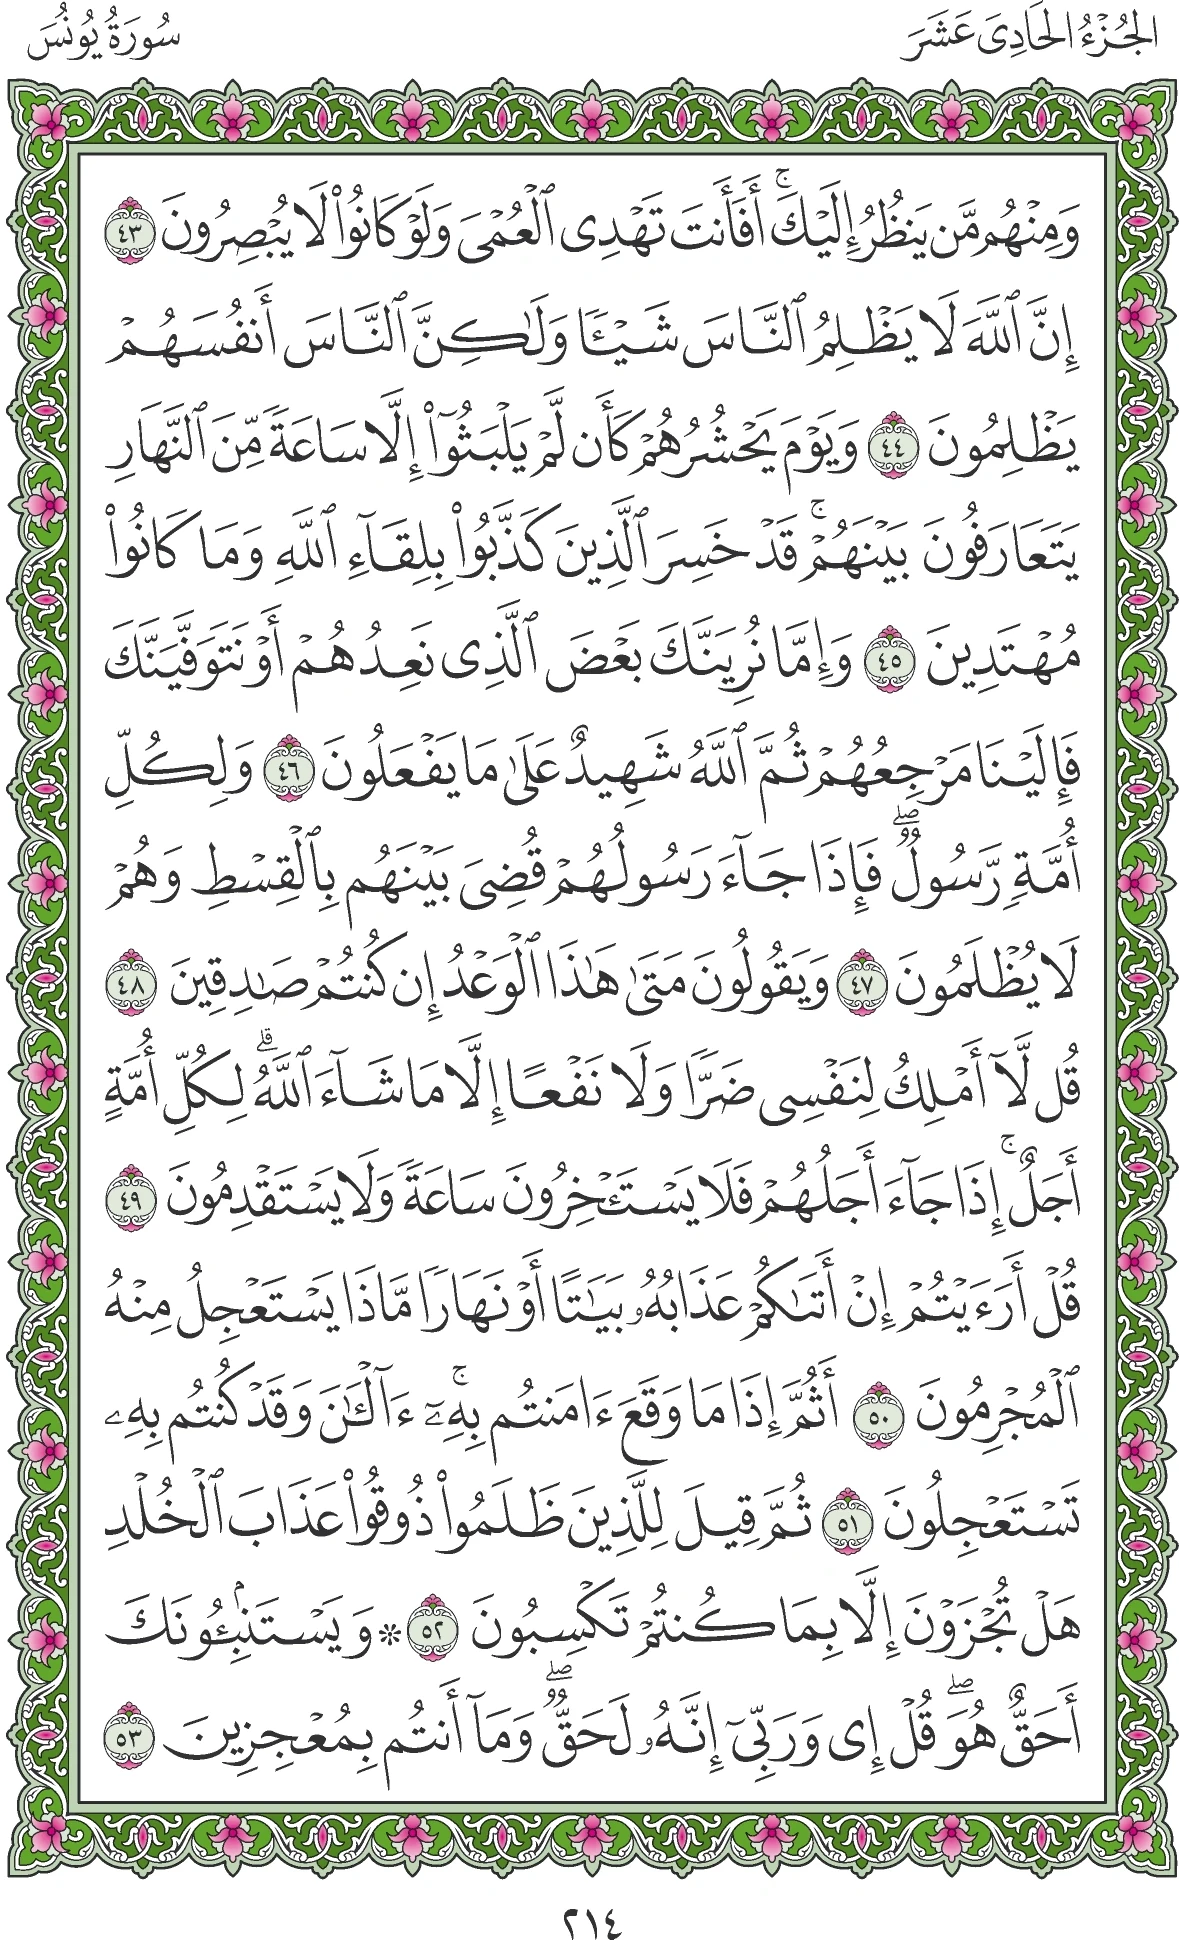 الجُزْءُ الحَادِى عَشَرَ
سُورَةُ يُونُسَ
وَمِنْهُم مَّن يَنظُرُ إِلَيْكَۚ أَفَأَنتَ تَهْدِى ٱلْعُمْىَ وَلَوْ كَانُوا۟ لَا يُبْصِرُونَ ٤٣
إِنَّ ٱللَّهَ لَا يَظْلِمُ ٱلنَّاسَ شَيْـًٔا وَلَـٰكِنَّ ٱلنَّاسَ أَنفُسَهُمْ
يَظْلِمُونَ ٤٤ وَيَوْمَ يَحْشُرُهُمْ كَأَن لَّمْ يَلْبَثُوٓا۟ إِلَّا سَاعَةً مِّنَ ٱلنَّهَارِ
يَتَعَارَفُونَ بَيْنَهُمْۚ قَدْ خَسِرَ ٱلَّذِينَ كَذَّبُوا۟ بِلِقَآءِ ٱللَّهِ وَمَا كَانُوا۟
مُهْتَدِينَ ٤٥ وَإِمَّا نُرِيَنَّكَ بَعْضَ ٱلَّذِى نَعِدُهُمْ أَوْ نَتَوَفَّيَنَّكَ
فَإِلَيْنَا مَرْجِعُهُمْ ثُمَّ ٱللَّهُ شَهِيدٌ عَلَىٰ مَا يَفْعَلُونَ ٤٦ وَلِكُلِّ
أُمَّةٍ رَّسُولٌۖ فَإِذَا جَآءَ رَسُولُهُمْ قُضِىَ بَيْنَهُم بِٱلْقِسْطِ وَهُمْ
لَا يُظْلَمُونَ ٤٧ وَيَقُولُونَ مَتَىٰ هَـٰذَا ٱلْوَعْدُ إِن كُنتُمْ صَـٰدِقِينَ ٤٨
قُل لَّآ أَمْلِكُ لِنَفْسِى ضَرًّا وَلَا نَفْعًا إِلَّا مَا شَآءَ ٱللَّهُۗ لِكُلِّ أُمَّةٍ
أَجَلٌۚ إِذَا جَآءَ أَجَلُهُمْ فَلَا يَسْتَـْٔخِرُونَ سَاعَةً وَلَا يَسْتَقْدِمُونَ ٤٩
قُلْ أَرَءَيْتُمْ إِنْ أَتَىٰكُمْ عَذَابُهُۥ بَيَـٰتًا أَوْ نَهَارًا مَّاذَا يَسْتَعْجِلُ مِنْهُ
ٱلْمُجْرِمُونَ ٥٠ أَثُمَّ إِذَا مَا وَقَعَ ءَامَنتُم بِهِۦٓۚ ءَآلْـَٔـٰنَ وَقَدْ كُنتُم بِهِۦ
تَسْتَعْجِلُونَ ٥١ ثُمَّ قِيلَ لِلَّذِينَ ظَلَمُوا۟ ذُوقُوا۟ عَذَابَ ٱلْخُلْدِ
هَلْ تُجْزَوْنَ إِلَّا بِمَا كُنتُمْ تَكْسِبُونَ ٥٢ ۞ وَيَسْتَنۢبِـُٔونَكَ
أَحَقٌّ هُوَۖ قُلْ إِى وَرَبِّىٓ إِنَّهُۥ لَحَقٌّۖ وَمَآ أَنتُم بِمُعْجِزِينَ ٥٣
٢١٤